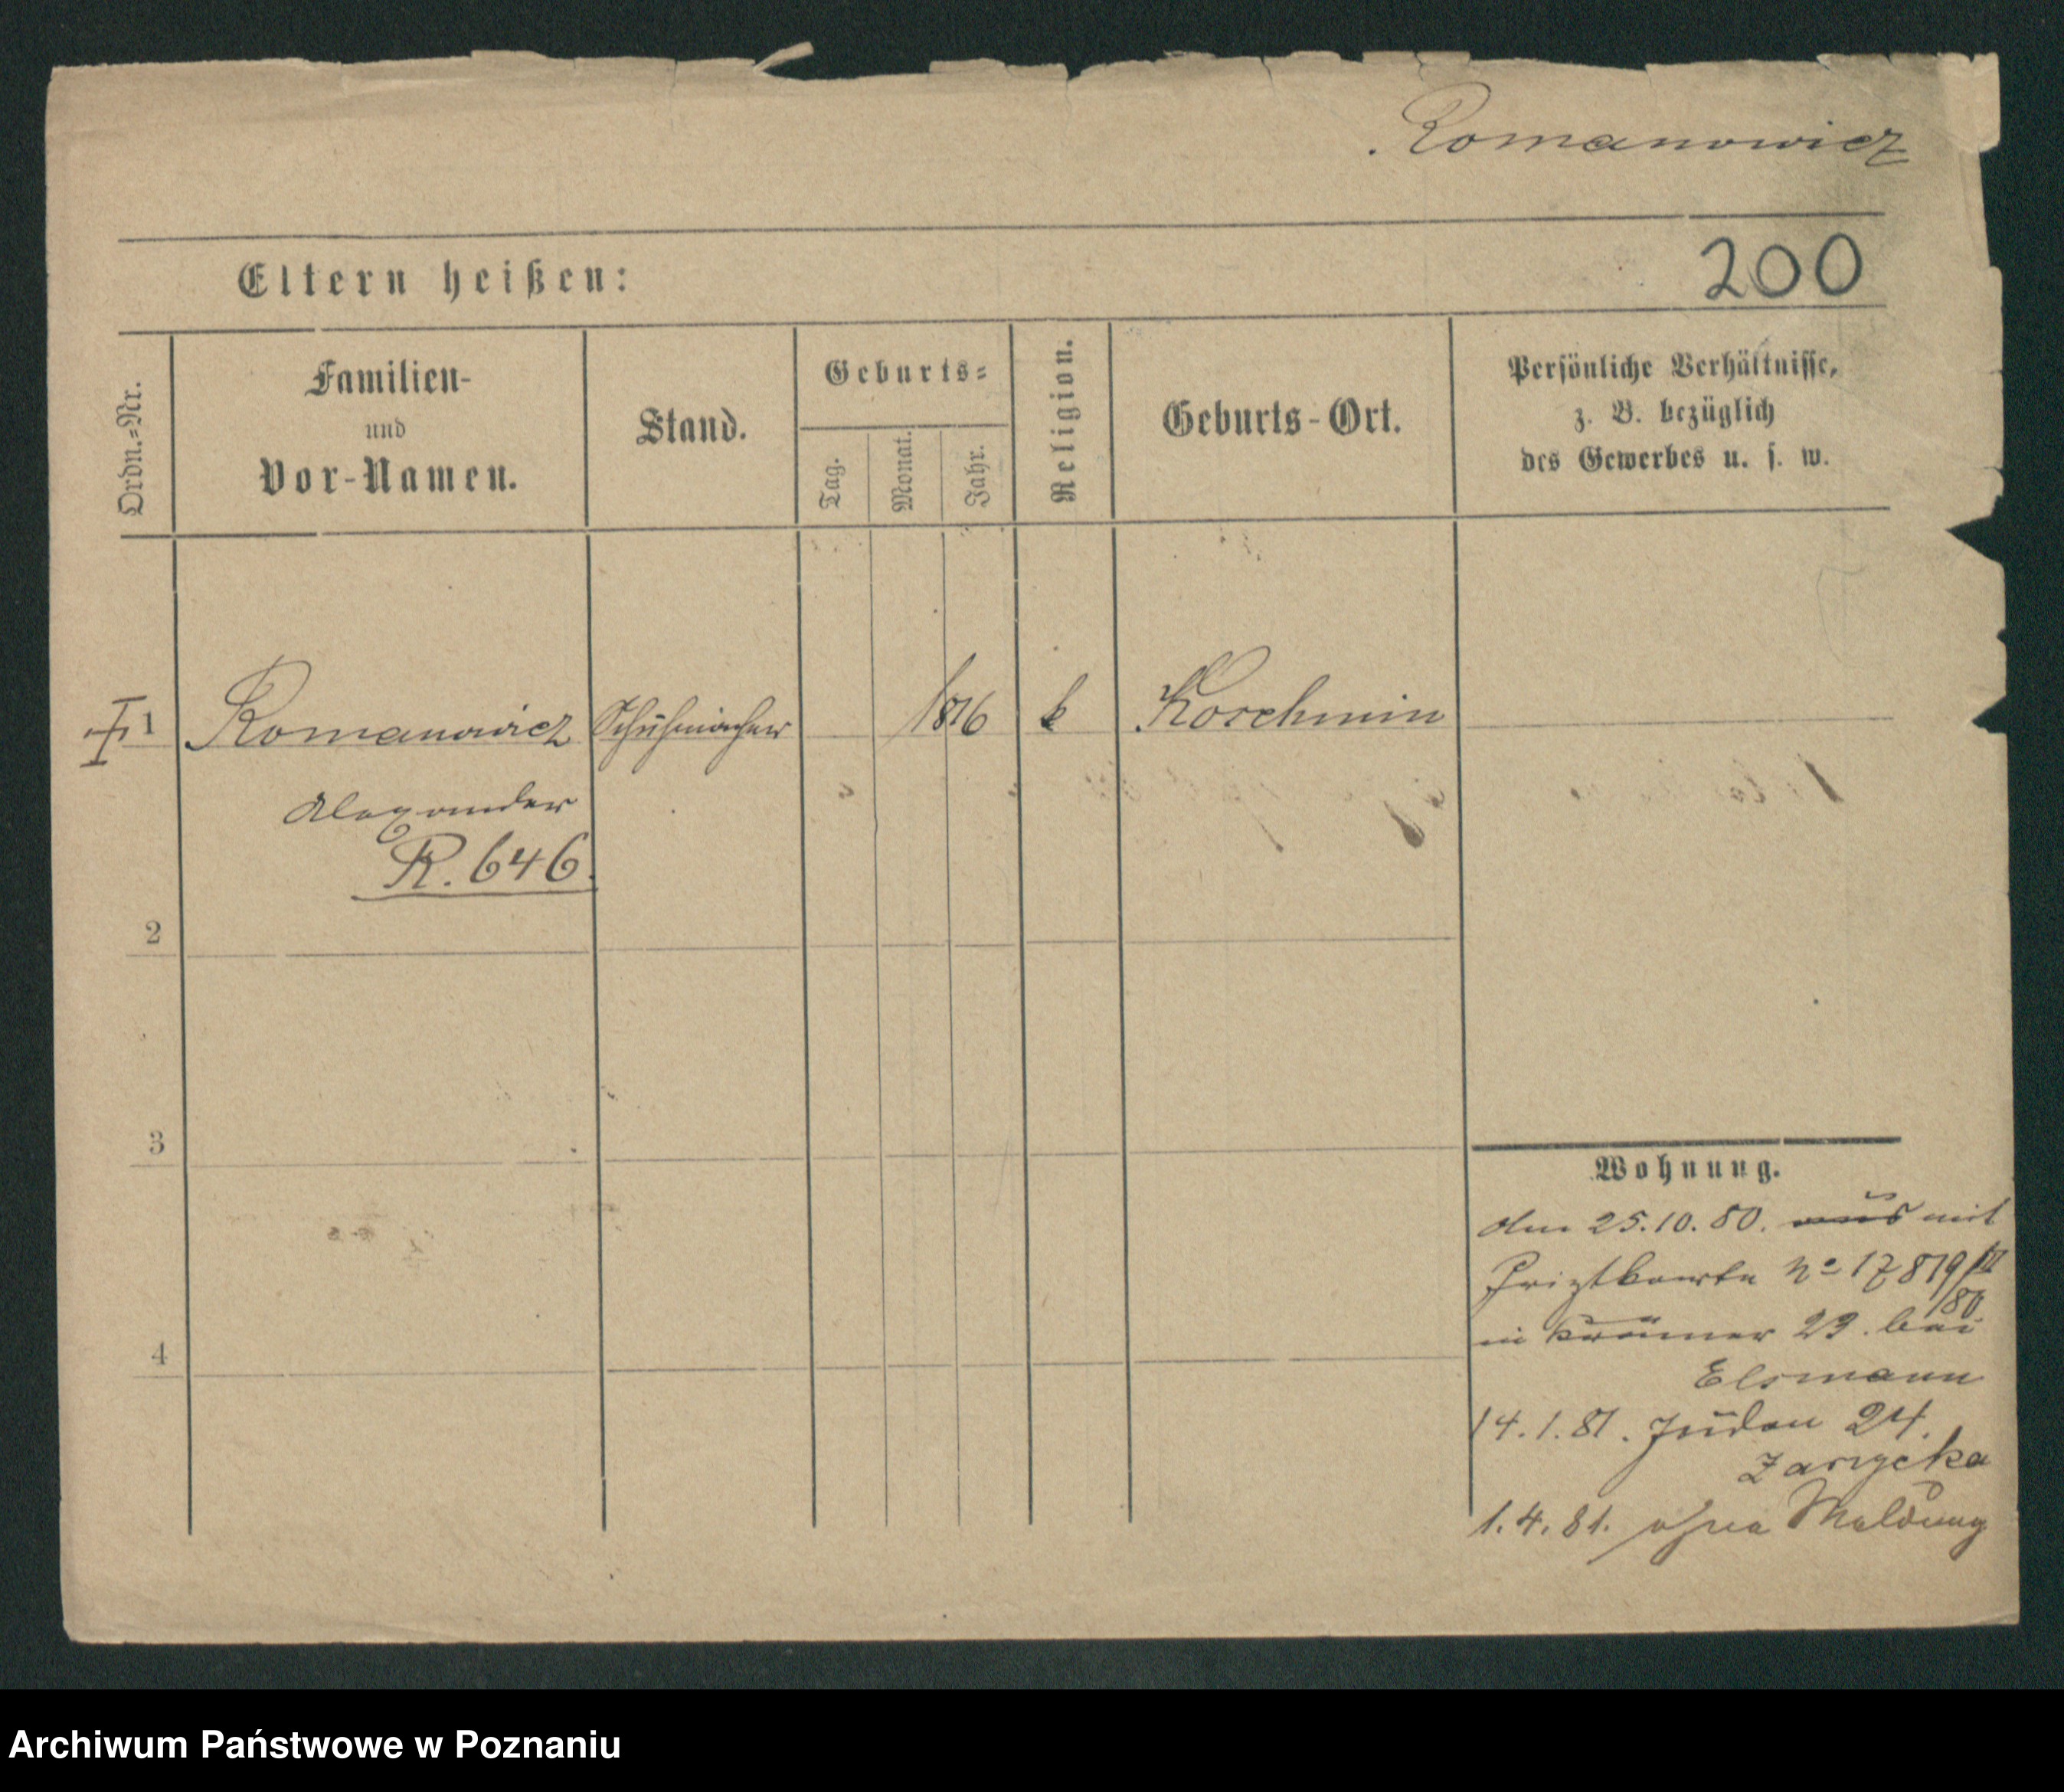 Romanowicz
200
Eltern heißen:
Ordn.=Nr.
Familien-
und
Vor-Namen.
Stand.
Geburts=
Tag.
Monat.
Jahr.
Religion.
Geburts-Ort.
Persönliche Verhältnisse,
z. B. bezüglich
des Gewerbes u. s. w.
1 Romanowicz Schuhmacher k Koschmin
Alexander
R. 646.
2
3
4
Wohnung.
den 25.10.80. aus mit
No 17879
/80
in Krämer 23. bei
Elsmann
14.1.81. Juden 24.
Zarycka
1.4.81. ohne Meldung
Archiwum Państwowe w Poznaniu